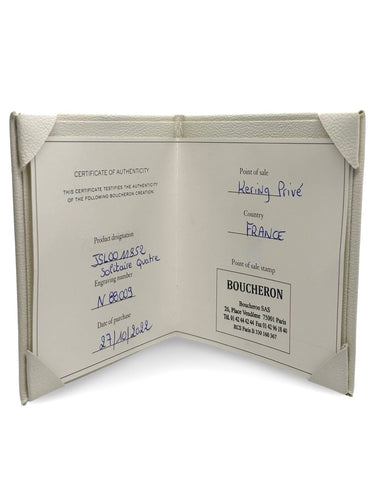 CERTIFICATE OF AUTHENTICITY
THIS CERTIFICATE TESTIFIES THE AUTHENTICITY
OF THE FOLLOWING BOUCHERON CREATION:
Product designation
JSL00 11852
Solitaire Quatre
Engraving number
N 88009
Date of purchase
27/10/2022
Point of sale
Kering Privé
Country
FRANCE
Point of sale stamp
BOUCHERON
Boucheron SAS
26, Place Vendôme 75001 Paris
Tél. 01 42 44 42 44 Fax 01 42 96 18 46
RCS Paris B 330 160 367